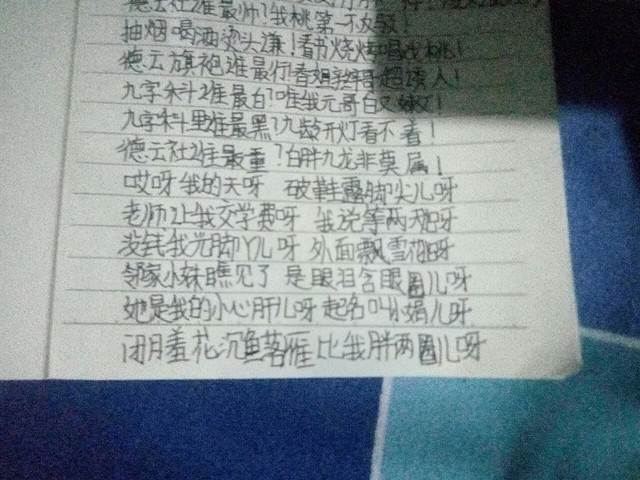 德云社谁最帅?我桃第一不放驳!
抽烟喝酒烫头谦!看书烧烤唱戏桃!
德云旗袍谁最行?春姐孙哥超撩人!
九字科谁最白?唯我元哥白又嫩!
九字科里谁最黑?九龄开灯看不着!
德云社谁最重?白胖九龙非莫属!
哎呀我的天呀 破鞋露脚尖儿呀
老师让我交学费呀 我说等两天呀
没钱我光脚丫儿呀 外面飘雪花呀
邻家小妹瞧见了 是眼泪含眼圈儿呀
她是我的小心肝儿呀 起名叫小娟儿呀
闭月羞花沉鱼落雁 比我胖两圈儿呀